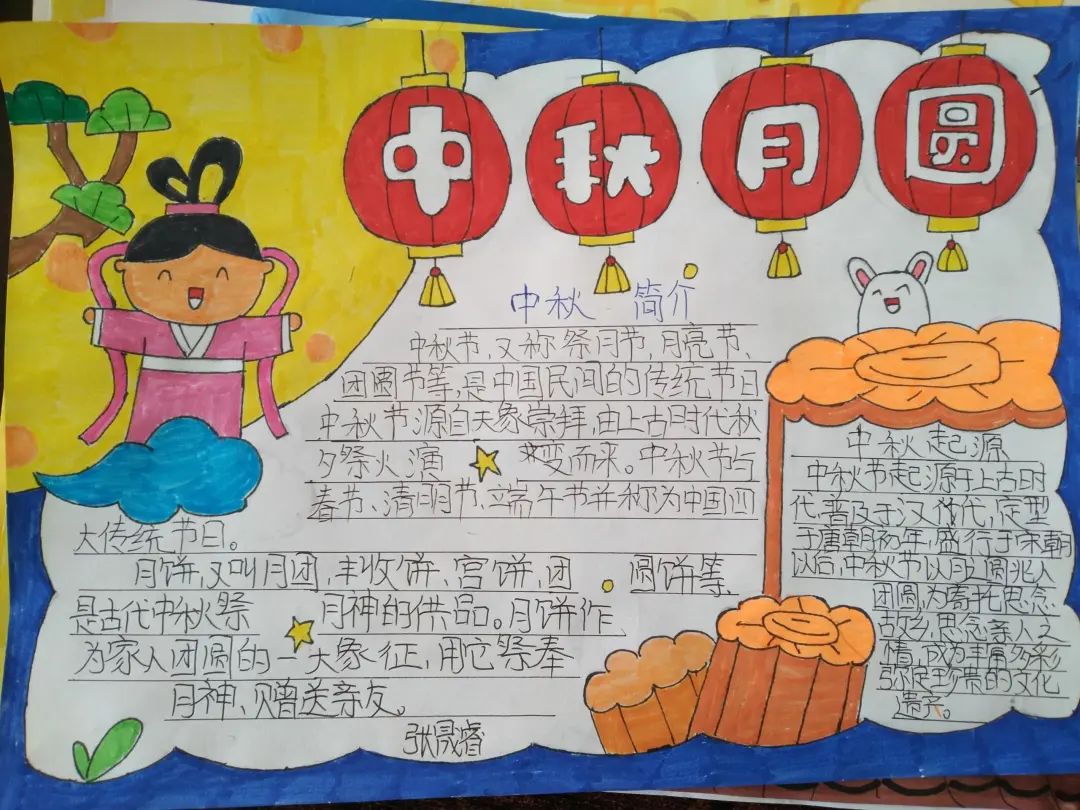 中秋月圆
中秋 简介
中秋节,又称祭月节,月亮节、
团圆节等,是中国民间的传统节日
中秋节源自天象崇拜,由上古时代秋
夕祭火演变而来。中秋节与
春节、清明节、端午节并称为中国四
大传统节日。
月饼,又叫月团,丰收饼、宫饼,团圆饼等,
是古代中秋祭月神的供品。月饼作
为家人团圆的一大象征,用它祭奉
月神、赠送亲友。
张晟睿
中秋起源
中秋节起源于上古时
代,普及于汉代,定型
于唐朝初年,盛行于宋朝
以后,中秋节以月圆兆人
团圆,为寄托思念
故乡,思念亲人之
情,成为丰富多彩
弥足珍贵的文化
遗产。